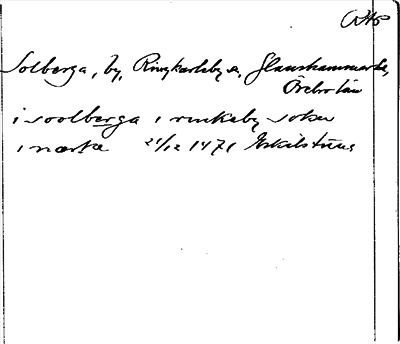 Solberga, by, Ringkarleby sn, Glanshammars hd,
Örebro län
i soolberga i rinkeby sokn
i nærke 21/12 1471 Eskilstuna